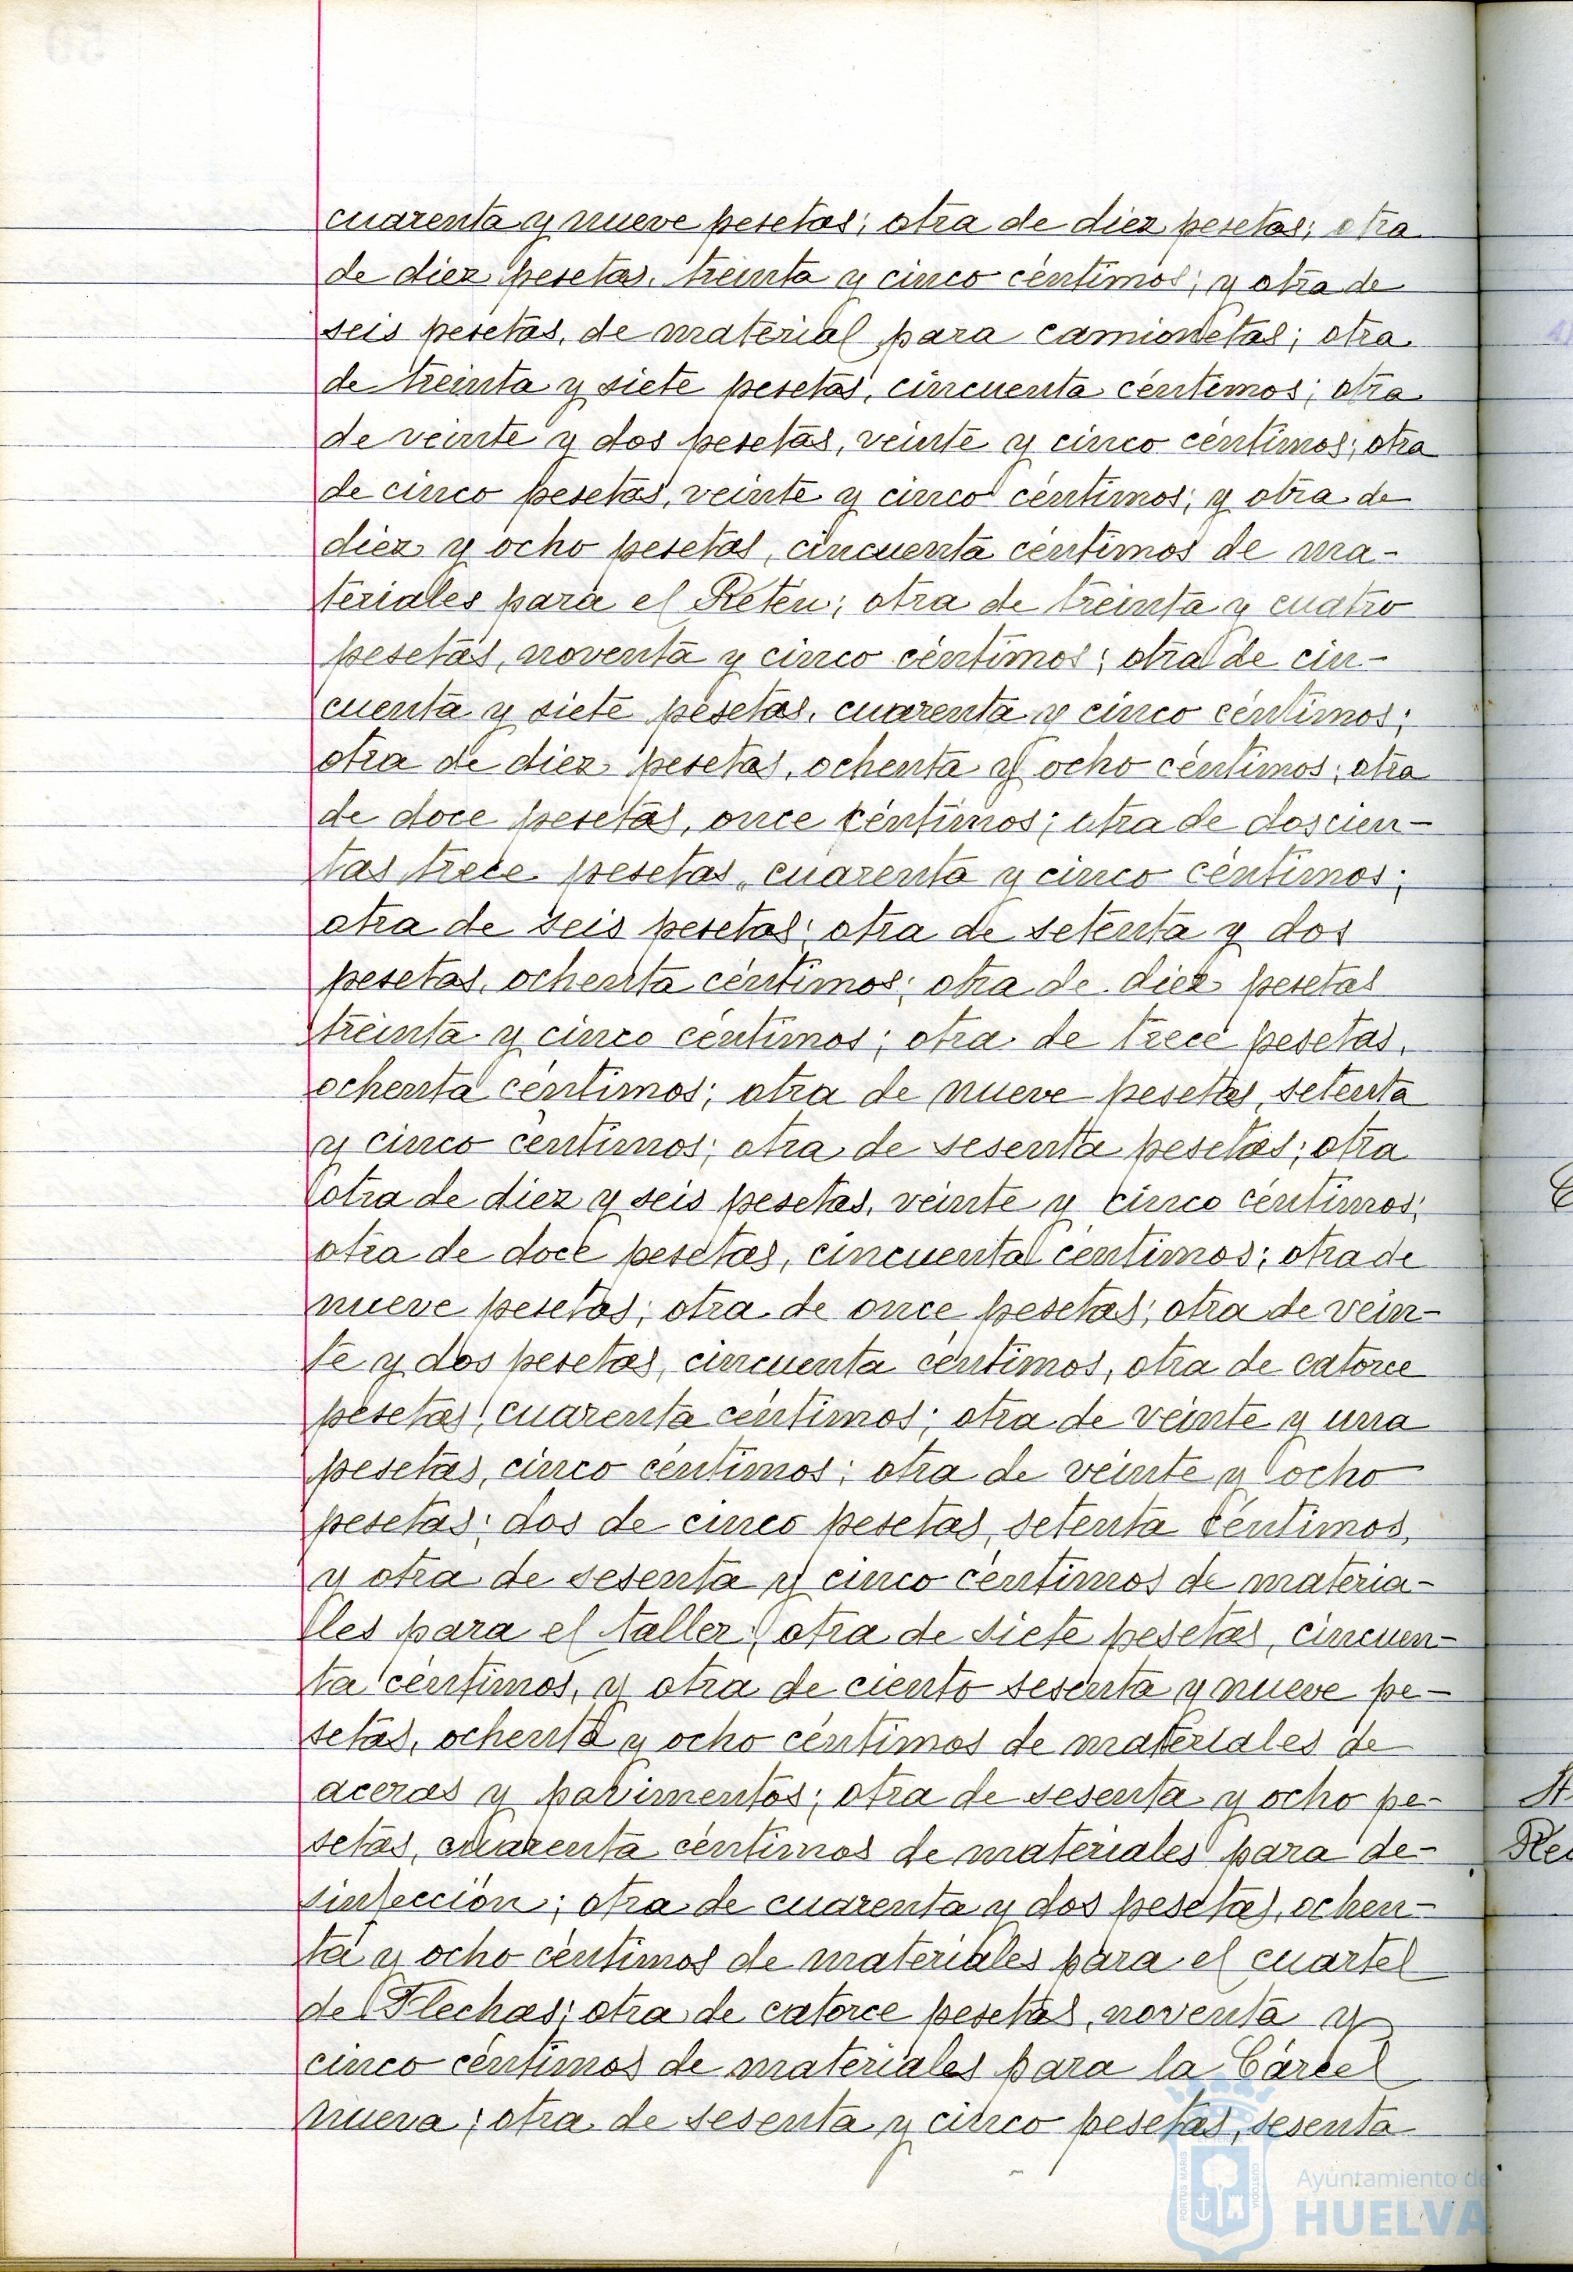 cuarenta y nueve pesetas; otra de diez pesetas; otra
de diez pesetas, treinta y cinco céntimos; y otra de
seis pesetas, de material para camionetas; otra
de treinta y siete pesetas, cincuenta céntimos; otra
de veinte y dos pesetas, veinte y cinco céntimos; otra
de cinco pesetas, veinte y cinco céntimos; y otra de
diez y ocho pesetas, cincuenta céntimos de ma-
teriales para el Reten; otra de treinta y cuatro
pesetas, noventa y cinco céntimos; otra de cin-
cuenta y siete pesetas, cuarenta y cinco céntimos;
otra de diez pesetas, ochenta y ocho céntimos; otra
de doce pesetas, once céntimos; otra de doscien-
tas trece pesetas, cuarenta y cinco céntimos;
otra de seis pesetas; otra de setenta y dos
pesetas, ochenta céntimos; otra de diez pesetas
treinta y cinco céntimos; otra de trece pesetas,
ochenta céntimos; otra de nueve pesetas, setenta
y cinco céntimos; otra de sesenta pesetas; otra
otra de diez y seis pesetas, veinte y cinco céntimos;
otra de doce pesetas, cincuenta céntimos; otra de
nueve pesetas; otra de once pesetas; otra de vein-
te y dos pesetas, cincuenta céntimos, otra de catorce
pesetas, cuarenta céntimos; otra de veinte y una
pesetas, cinco céntimos; otra de veinte y ocho
pesetas; dos de cinco pesetas, setenta céntimos,
y otra de sesenta y cinco céntimos de materia-
les para el taller; otra de siete pesetas, cincuen-
ta céntimos, y otra de ciento sesenta y nueve pe-
setas, ochenta y ocho céntimos de materiales de
aceras y pavimentos; otra de sesenta y ocho pe-
setas, cuarenta céntimos de materiales para de-
sinfección; otra de cuarenta y dos pesetas, ochen-
ta y ocho céntimos de materiales para el cuartel
de Flechas; otra de catorce pesetas, noventa y
cinco céntimos de materiales para la Cárcel
nueva; otra de sesenta y cinco pesetas, sesenta
Ayuntamiento de
HUELVA
PORTUS MARIS
CUSTODIA